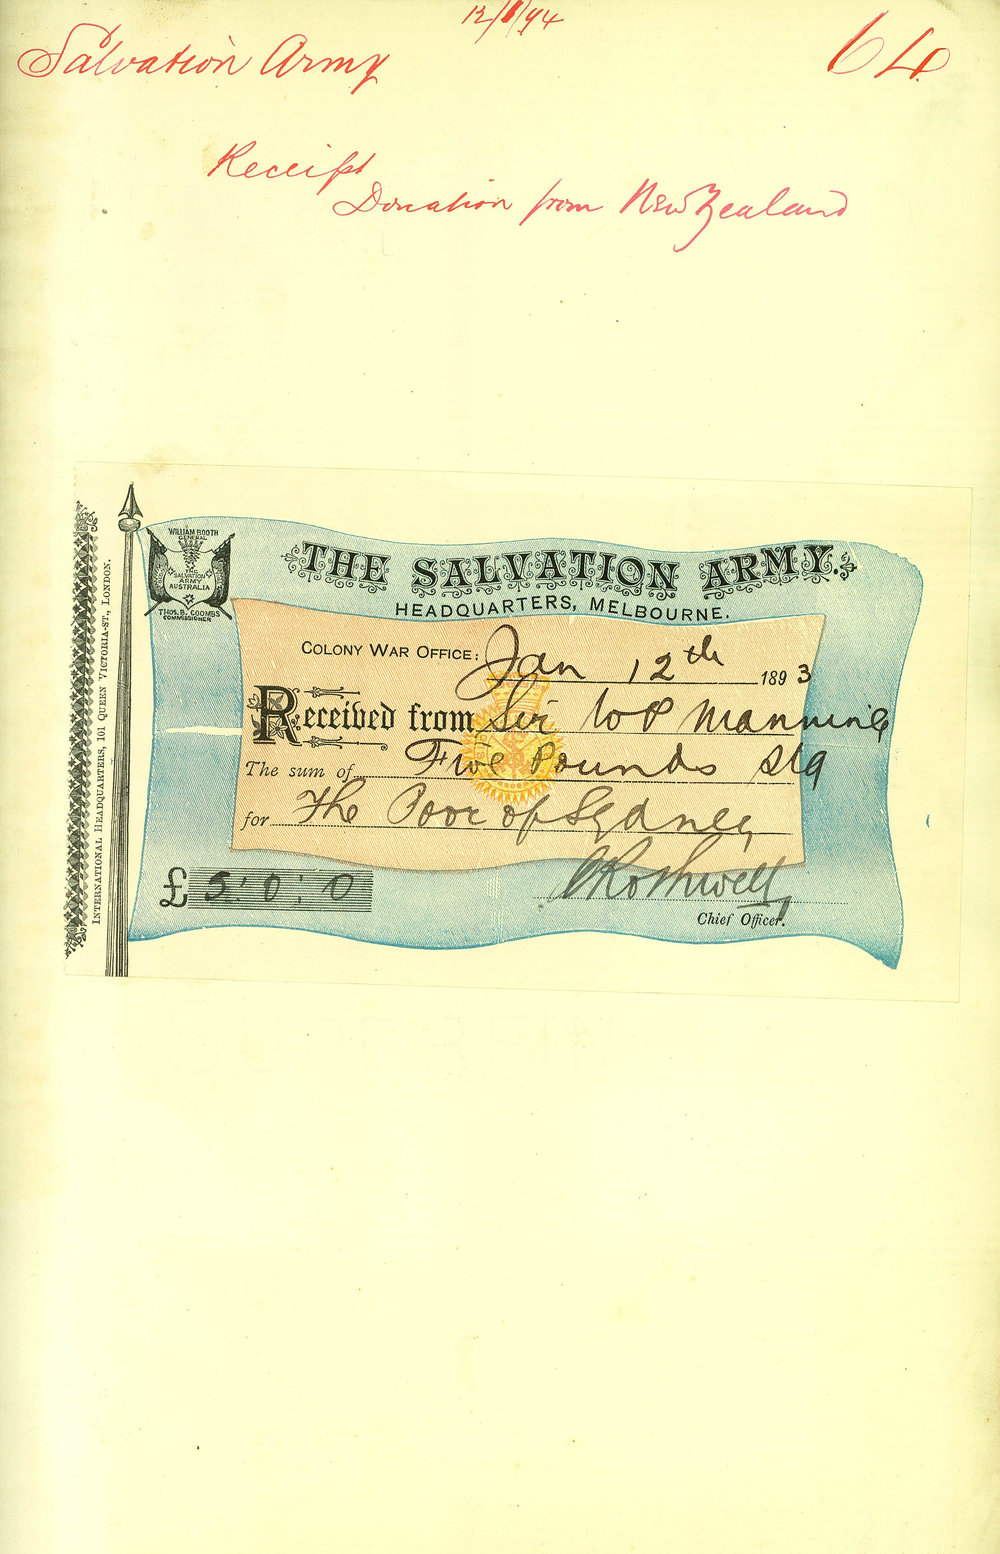 12/1/94
Salvation Army
64
Receipt
Donation from New Zealand
INTERNATIONAL HEADQUARTERS, 101 QUEEN VICTORIA-ST., LONDON.
WILLIAM BOOTH
GENERAL
THE
SALVATION
ARMY
AUSTRALIA
THOS. B. COOMBS
COMMISSIONER
THE SALVATION ARMY.
HEADQUARTERS, MELBOURNE.
COLONY WAR OFFICE: Jan 12th 1893
Received from Sir W P Manning
The sum of Five Pounds Stg
for The Poor of Sydney
£ 5:0:0
Rothwell
Chief Officer.